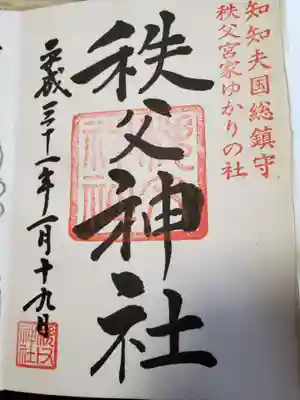 知知夫国総鎮守
秩父宮家ゆかりの社
秩父神社
平成三十一年一月十九日
秩父
神社